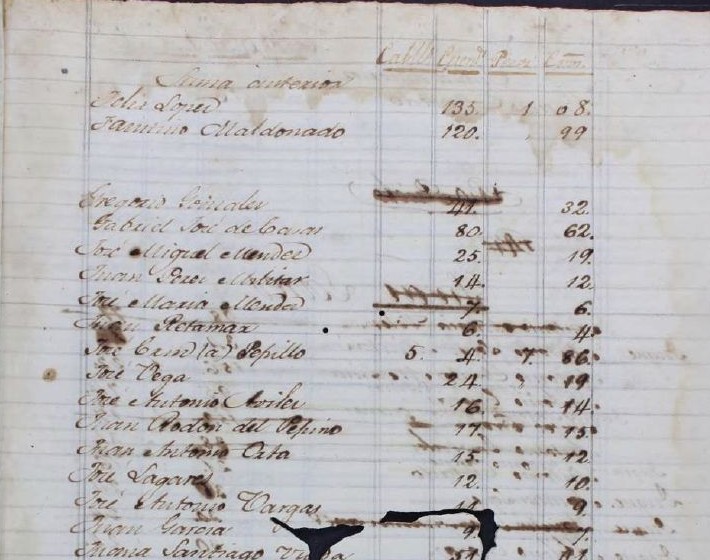 Cabllˢ Cuerdˢ Pesos Cum.
Suma anterior
Felis Lopez 135. 1 08.
Faustino Maldonado 120. 99
Gregorio Gonzales 41. 32.
Gabriel José de Casas 80. 62.
José Miguel Mendez 25. 19.
Juan Perez Militar 14. 12.
José Maria Mendez 7. 6.
Juan Retamar 6. 4.
José Cruz (a) Pepillo 5. 4 7. 86.
José Vega 24. 19
José Antonio Aviles 16. 14.
Juan Rodon del Pepino 17. 15.
Juan Antonio Cata 15. 12.
José Lagares 12. 10.
José Antonio Vargas 11. 9.
Juan Garcia 9. 7.
Juana Santiago 11.